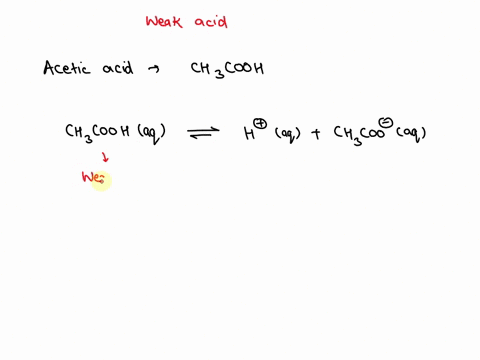 Weak acid
Acetic acid → CH₃COOH
CH₃COOH (aq) ⇌ H⊕ (aq) + CH₃COO⊖ (aq)
↓